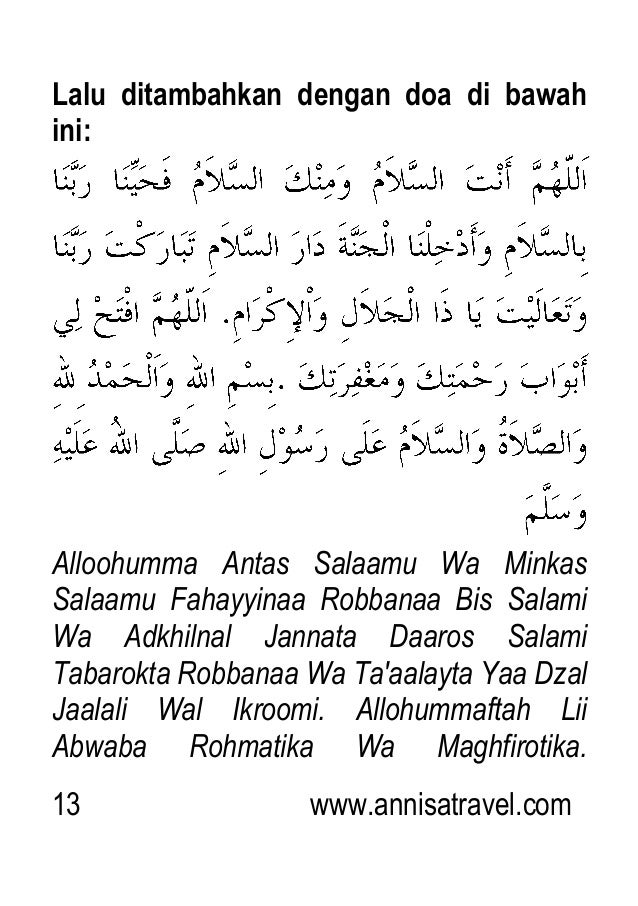 Lalu ditambahkan dengan doa di bawah
ini:
اَللّٰهُمَّ أَنْتَ السَّلاَمُ وَمِنْكَ السَّلاَمُ فَحَيِّنَا رَبَّنَا
بِالسَّلاَمِ وَأَدْخِلْنَا الْجَنَّةَ دَارَ السَّلاَمِ تَبَارَكْتَ رَبَّنَا
وَتَعَالَيْتَ يَا ذَا الْجَلاَلِ وَاْلإِكْرَامِ. اَللّٰهُمَّ افْتَحْ لِي
أَبْوَابَ رَحْمَتِكَ وَمَغْفِرَتِكَ. بِسْمِ اللهِ وَالْحَمْدُ لِلهِ
وَالصَّلاَةُ وَالسَّلاَمُ عَلَى رَسُوْلِ اللهِ صَلَّى اللهُ عَلَيْهِ
وَسَلَّمَ
Alloohumma Antas Salaamu Wa Minkas
Salaamu Fahayyinaa Robbanaa Bis Salami
Wa Adkhilnal Jannata Daaros Salami
Tabarokta Robbanaa Wa Ta'aalayta Yaa Dzal
Jaalali Wal Ikroomi. Allohummaftah Lii
Abwaba Rohmatika Wa Maghfirotika.
13 www.annisatravel.com